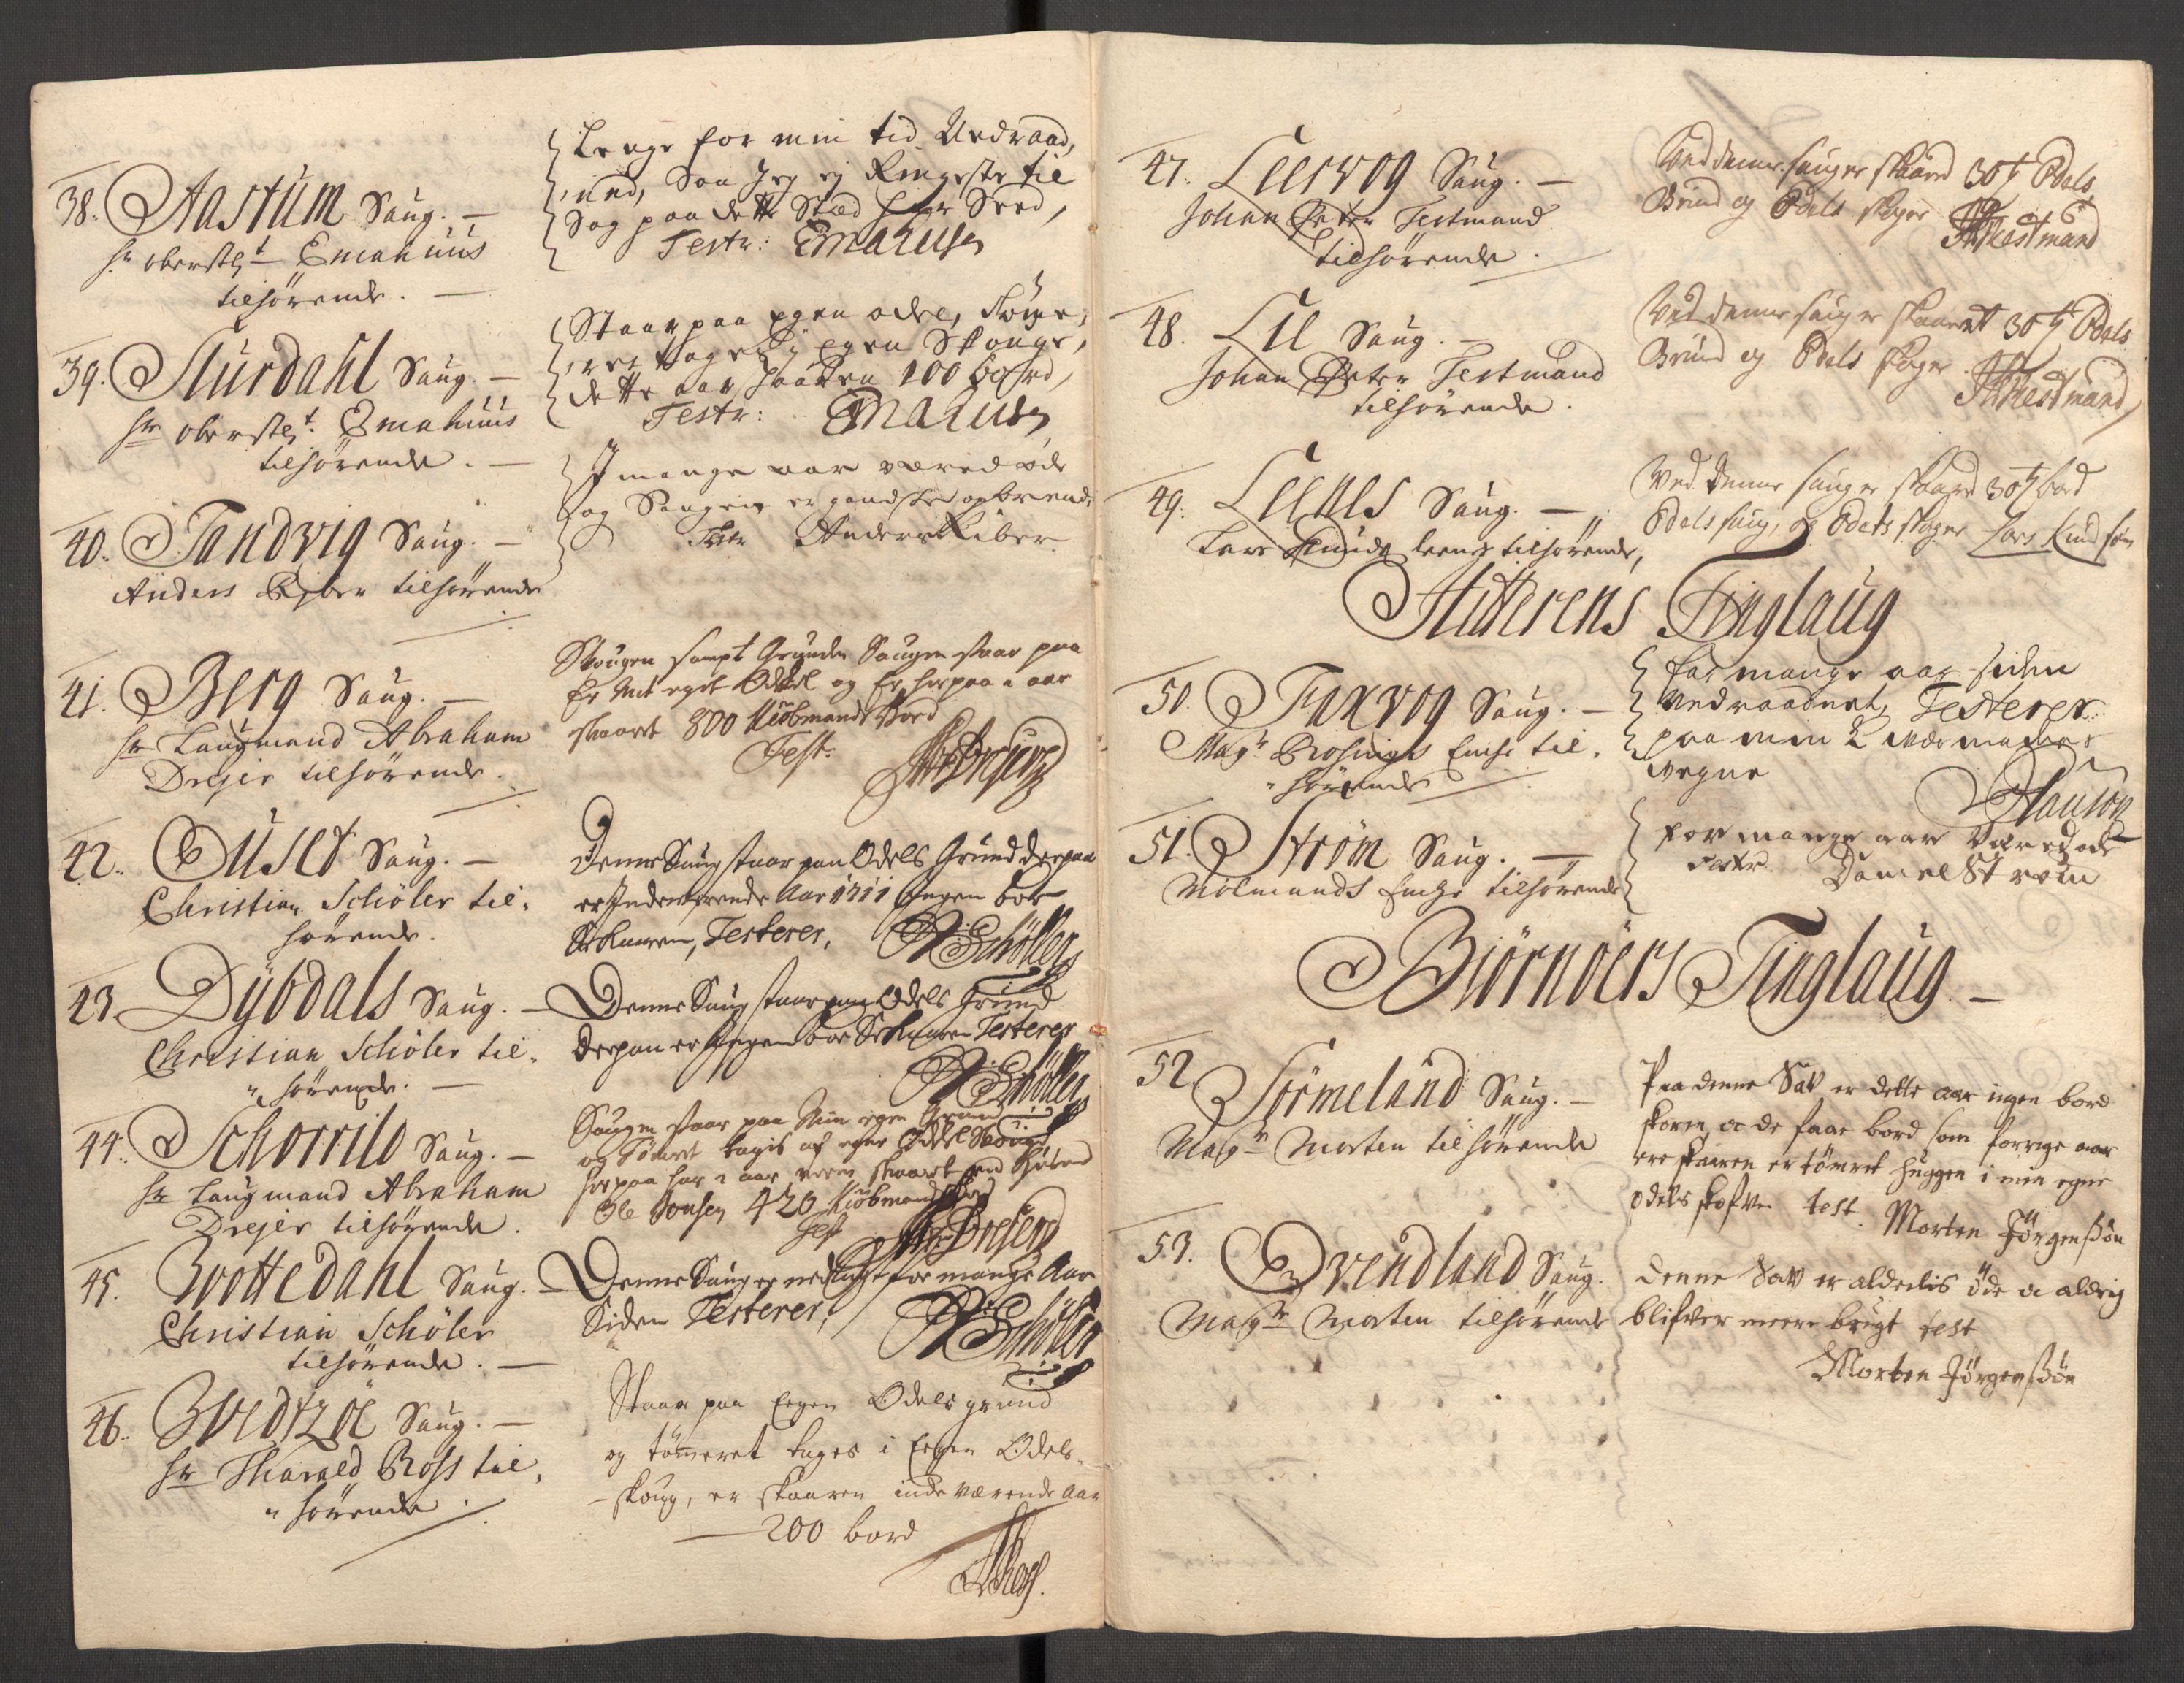 38. Aastum Saug. —
hr oberstl:t Emahuus
tilhörende. —
Lenge for min tid Nedraad,
Saa Jeg ej til
Sag paa dette Sted
Testr: Emahusen
39. Slurdahl Saug. —
hr oberstl:t Emahuus
tilhörende. —
Staar paa egen odel,
egen Skouge,
dette aar 100 bord,
Testr: Emahusen
40. Tandvig Saug. —
Anders Riber tilhörende
J mange aar vered øde
og Saugen er gandske opbrendt
Testr Anders Riber
41. Berg Saug. —
hr Laugmand Abraham
Drejer tilhörende.
Skougen sampt Grunden Saugen staar paa
Er Mit eget Oddel og Er herpaa i aar
skaaret 800 Kiöbmands Bord
Test. Abr Dreyer
42. Ouset Saug. —
Christian Schöler til-
hörende.
Denne Saug staar paa Odels Grund derpaa
er Indeverende Aar 1711 Ingen bor
Skaaren, Testerer, Schöller
43. Dÿbdals Saug. —
Christian Schöler til-
hörende. —
Denne Saug staar paa Odels Grund
Derpaa er Ingen bor Skaaren Testerer
Schöller
44. Schorrild Saug. —
hr Laugmand Abraham
Drejer tilhörende.
Saugen staar paa Min egen Grund
og Tömret tagis af egne Oddel Skoug
herpaa har i aar skaaret
Ole Jonsen 420 Kiöbmands Bord
Test Abr Dreyer
45. Brottedahl Saug. —
Christian Schöler
tilhörende. —
Denne Saug er nedlagt for mange Aar
Siden Testerer, Schöller
46. Saug. —
hr Tharald Ross til-
hörende.
Staar paa Eegen Odels grund
og tömeret tages i Eegen Odels-
skoug, er skaaren inde værende Aar
— 200 bord
47. Leervog Saug. —
Johan Peter Testmand
tilhörende.
Ved denne saug er skaaret 30 Odels
Grund og Odels skoger
Testmand
48. Lil Saug. —
Johan Peter Testmand
tilhörende.
Ved denne saug er skaaret 30 Odels
Grund og Odels skoger
Testmand
49. Leenes Saug. —
Lars Knuds leenes tilhörende,
Ved denne saug er skaaret 30 bord
Odels saug, og Odels skoger Lars Knudsøn
Hitterens Tinglaug
50. Faxvog Saug. —
Mag:r til-
hörende
For mange aar siden
Nedraadnet, Testerer
paa min
vegne
51. Ström Saug. —
Mölmands tilhörende
for mange aar Vered øde
Testr Daniel Ström
Biörnöers Tinglaug. —
52 Sörmeland Saug. —
Mag:r Morten tilhörende
Paa denne Sav er dette aar ingen bord
skoren, oc de faae bord som forrige aar
ere skaaren er tömret huggen i min egne
odels skofve test. Morten Jörgenssøn
53. Qvendland Saug.
Mag:r Morten tilhörende
Denne Sav er aldelis öde oc aldrig
blifver meere brugt test
Morten Jörgenssøn